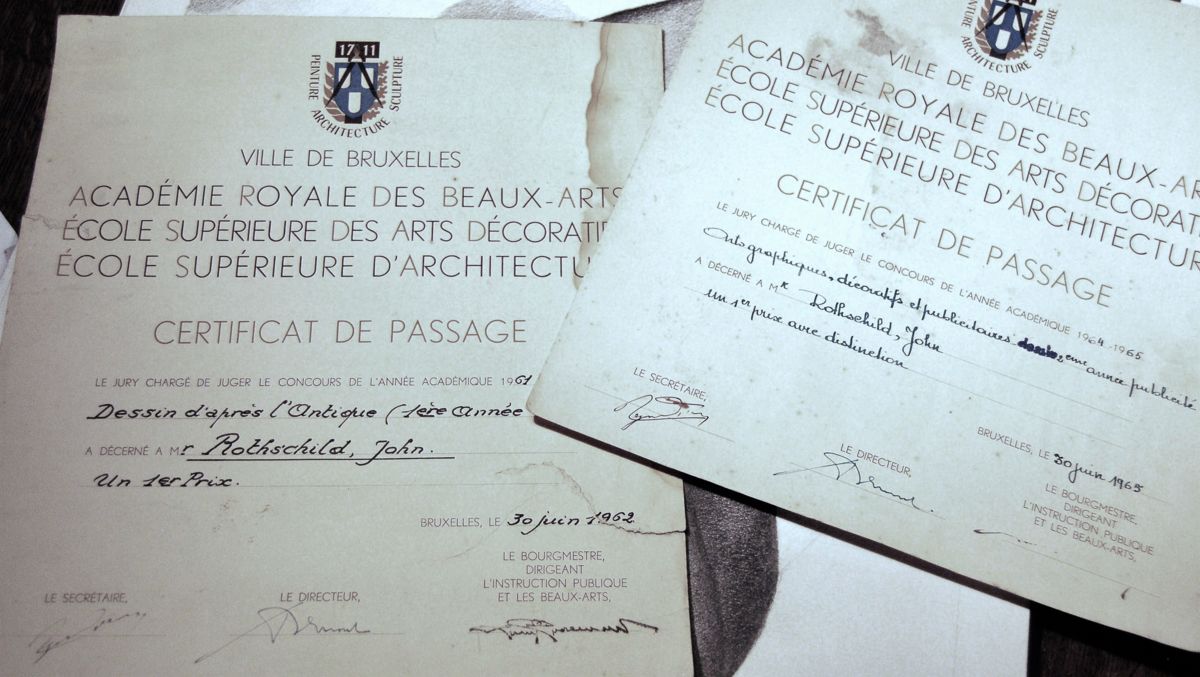 17 11
PEINTURE ARCHITECTURE SCULPTURE
VILLE DE BRUXELLES
ACADÉMIE ROYALE DES BEAUX-ARTS
ÉCOLE SUPÉRIEURE DES ARTS DÉCORATIF
ÉCOLE SUPÉRIEURE D'ARCHITECTU
CERTIFICAT DE PASSAGE
LE JURY CHARGÉ DE JUGER LE CONCOURS DE L'ANNÉE ACADÉMIQUE 1961
Dessin d'après l'Antique (1ère Année
A DÉCERNÉ A Mr Rothschild, John.
Un 1er Prix.
BRUXELLES, LE 30 juin 1962
LE BOURGMESTRE,
DIRIGEANT
L'INSTRUCTION PUBLIQUE
ET LES BEAUX-ARTS,
LE SECRÉTAIRE,
LE DIRECTEUR,
PEINTURE ARCHITECTURE SCULPTURE
VILLE DE BRUXELLES
ACADÉMIE ROYALE DES BEAUX-AR
ÉCOLE SUPÉRIEURE DES ARTS DÉCORATI
ÉCOLE SUPÉRIEURE D'ARCHITECTUR
CERTIFICAT DE PASSAGE
LE JURY CHARGÉ DE JUGER LE CONCOURS DE L'ANNÉE ACADÉMIQUE 1964-1965
Arts graphiques, décoratifs et publicitaires 2eme année publicité
A DÉCERNÉ A Mr Rothschild, John
un 1er prix avec distinction
LE SECRÉTAIRE,
LE DIRECTEUR,
BRUXELLES, LE 30 juin 1965
LE BOURGMESTRE,
DIRIGEANT
L'INSTRUCTION PUBLIQUE
ET LES BEAUX-ARTS,